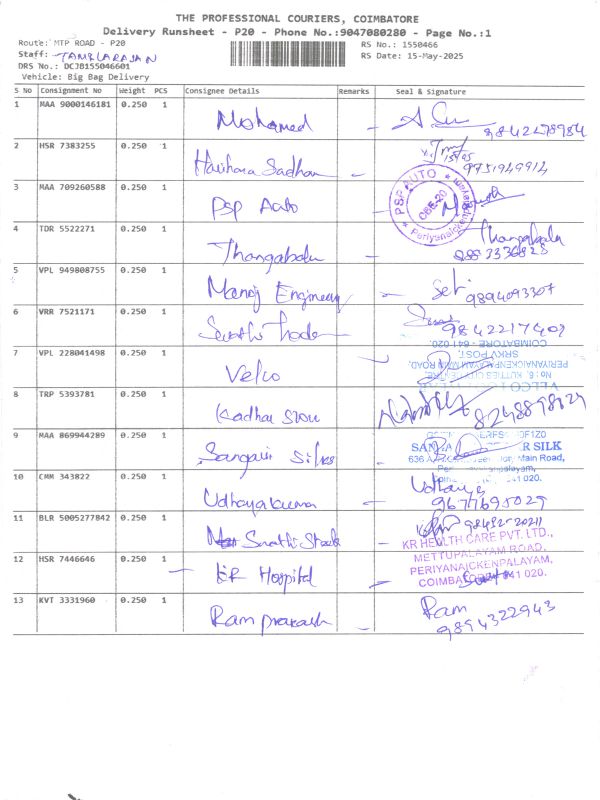 THE PROFESSIONAL COURIERS, COIMBATORE
Delivery Runsheet - P20 - Phone No.:9047080280 - Page No.:1
Route: MTP ROAD - P20
RS No.: 1550466
Staff: TAMILARAJAN
RS Date: 15-May-2025
DRS No.: DCJ8155046601
Vehicle: Big Bag Delivery
S No Consignment No Weight PCS Consignee Details Remarks Seal & Signature
1 MAA 9000146181 0.250 1 Mohamed
9842278984
2 HSR 7383255 0.250 1 Harihara Sadhan
9751949914
3 MAA 709260588 0.250 1 Psp Auto
PSP AUTO
Periyanaickenpalayam
4 TDR 5522271 0.250 1 Thangabalu Thangabalu
5 VPL 949808755 0.250 1 Manoj Engineery
9894093307
6 VRR 7521171 0.250 1 Swathi Trader
9842217409
7 VPL 228041498 0.250 1 Velco
COIMBATORE - 641 020.
SRKV POST,
PERIYANAICKENPALAYAM
8 TRP 5393781 0.250 1 Kadhar Store
8248898029
9 MAA 869944289 0.250 1 Sangavi Silks
R SILK
Main Road,
641 020.
10 CMM 343822 0.250 1 Udhayakumar Udhaya
9677695029
11 BLR 5005277842 0.250 1 Swathi Steels
98432-20211
12 HSR 7446646 0.250 1 KR Hospital
KR HEALTH CARE PVT. LTD.,
METTUPALAYAM ROAD,
PERIYANAICKENPALAYAM,
COIMBATORE 641 020.
13 KVT 3331960 0.250 1 Ram prakash Ram
9894322943